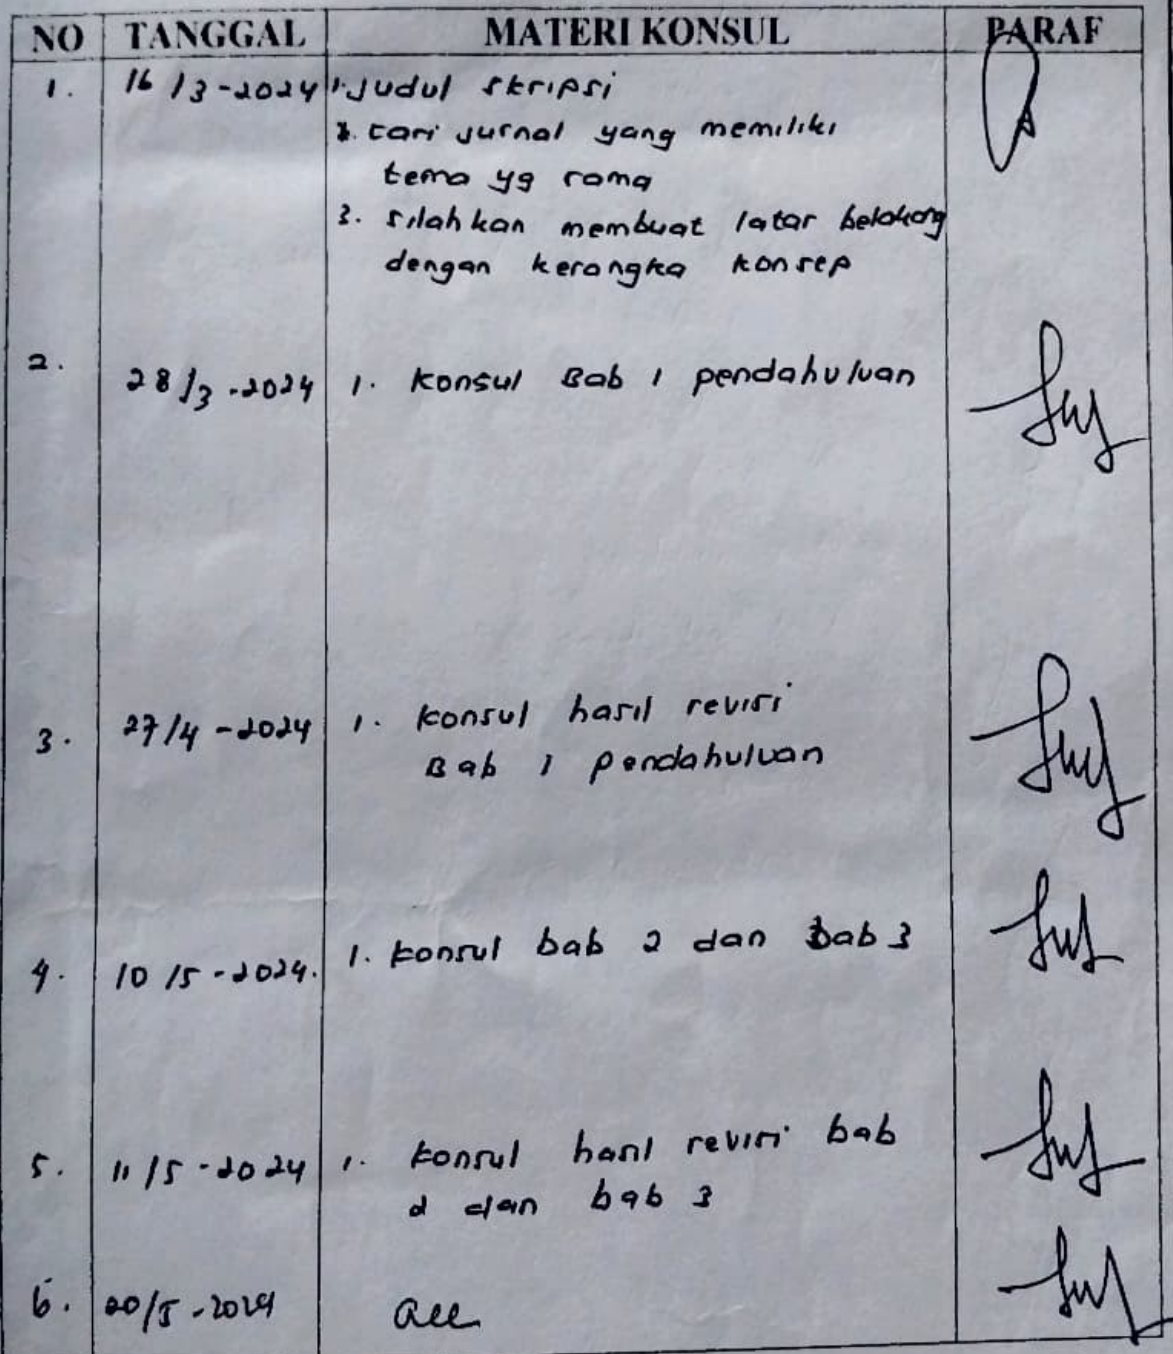 NO TANGGAL MATERI KONSUL PARAF
1. 16/3-2024 1. Judul skripsi
2. cari jurnal yang memiliki
tema yg sama
3. silahkan membuat latar belakang
dengan kerangka konsep
2.
28/3-2024 1. Konsul Bab 1 pendahuluan
3. 27/4-2024 1. Konsul hasil revisi
Bab 1 pendahuluan
4. 10/5-2024. 1. Konsul bab 2 dan bab 3
5. 11/5-2024 1. Konsul hasil revisi bab
2 dan bab 3
6. 20/5-2024 acc